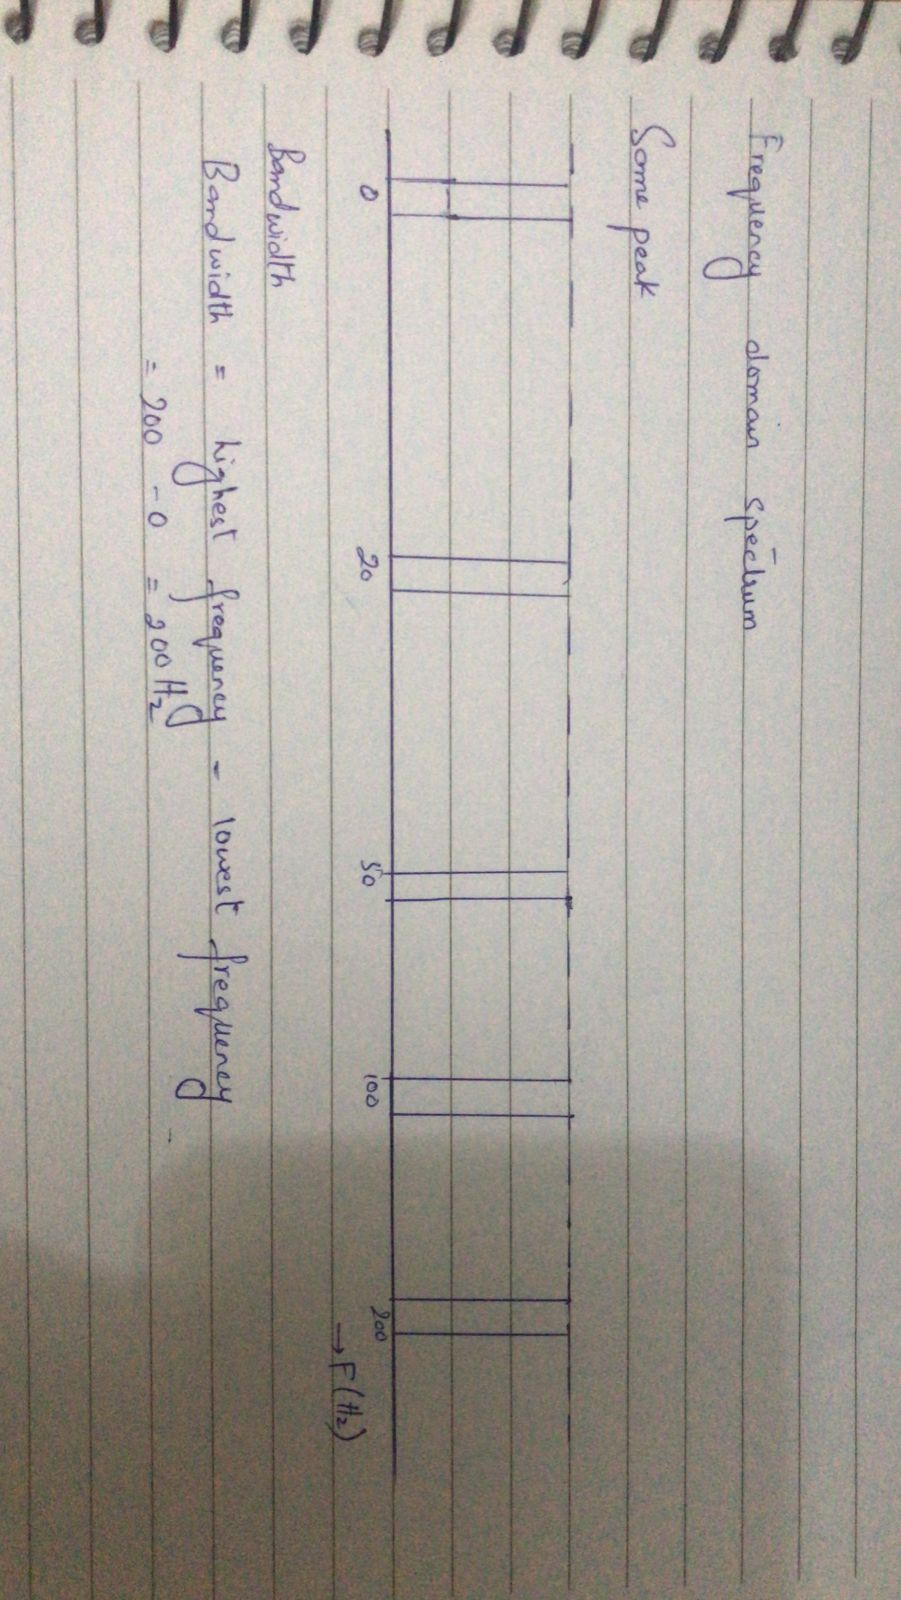 Frequency domain spectrum
Some peak
0 20 50 100 200
→ F(Hz)
Bandwidth
Bandwidth = highest frequency - lowest frequency
= 200 - 0 = 200 Hz